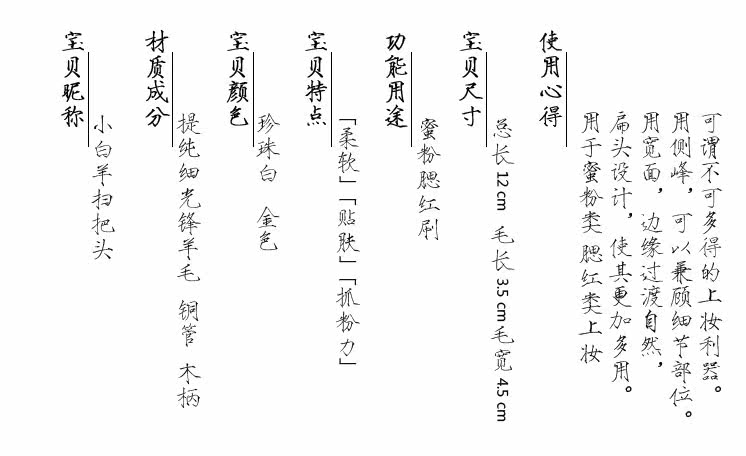 宝贝昵称
小白羊扫把头
材质成分
提纯细光锋羊毛 铜管 木柄
宝贝颜色
珍珠白 金色
宝贝特点
「柔软」「贴肤」「抓粉力」
功能用途
蜜粉腮红刷
宝贝尺寸
总长12cm 毛长3.5cm毛宽4.5cm
使用心得
用于蜜粉类 腮红类上妆
扁头设计，使其更加多用。
用宽面，边缘过渡自然，
用侧峰，可以兼顾细节部位。
可谓不可多得的上妆利器。